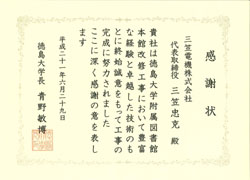 感謝状
三笠電機株式会社
代表取締役 三笠忠克 殿
貴社は徳島大学附属図書館
本館改修工事において豊富
な経験と卓越した技術のも
とに終始誠意をもって工事の
完成に努力されました
ここに深く感謝の意を表し
ます
平成二十一年六月二十九日
徳島大学長 青野敏博